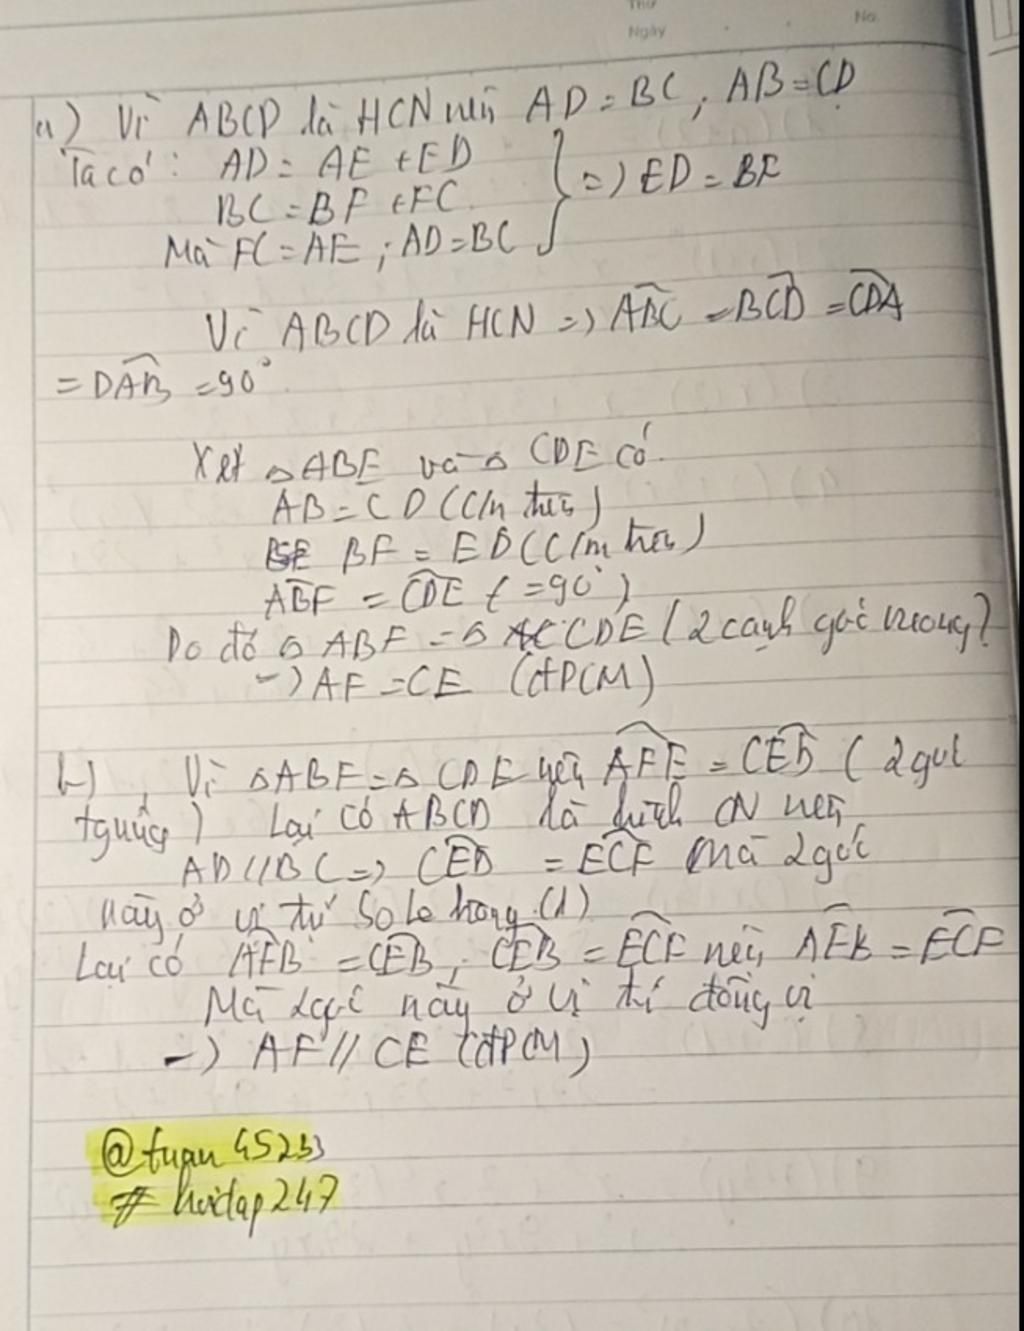 Thứ
Ngày No.
a) Vì ABCD là HCN nên AD = BC, AB = CD
Ta có: AD = AE + ED
BC = BF + FC
Mà FC = AE ; AD = BC } => ED = BF
Vì ABCD là HCN => \widehat{ABC} = \widehat{BCD} = \widehat{CDA}
= \widehat{DAB} = 90°
Xét △ABE và △ CDE có
AB = CD (C/m trên)
BF = ED (C/m trên)
\widehat{ABF} = \widehat{CDE} (=90°)
Do đó △ ABF = △ CDE (2 cạnh góc vuông)
-) AF = CE (đPCM)
b) Vì △ABF = △ CDE nên \widehat{AFE} = \widehat{CED} (2 gut
tguứng) Lại có ABCD là hình CN nên
AD // BC => \widehat{CED} = \widehat{ECF} mà 2 góc
này ở vị trí so le trong (1)
Lại có \widehat{AFB} = \widehat{CEB}, \widehat{CEB} = \widehat{ECF} nên \widehat{AEB} = \widehat{ECF}
Mà 2 góc này ở vị trí đồng vị
-) AF // CE (đPCM)
@tuan45233
# hoidap247